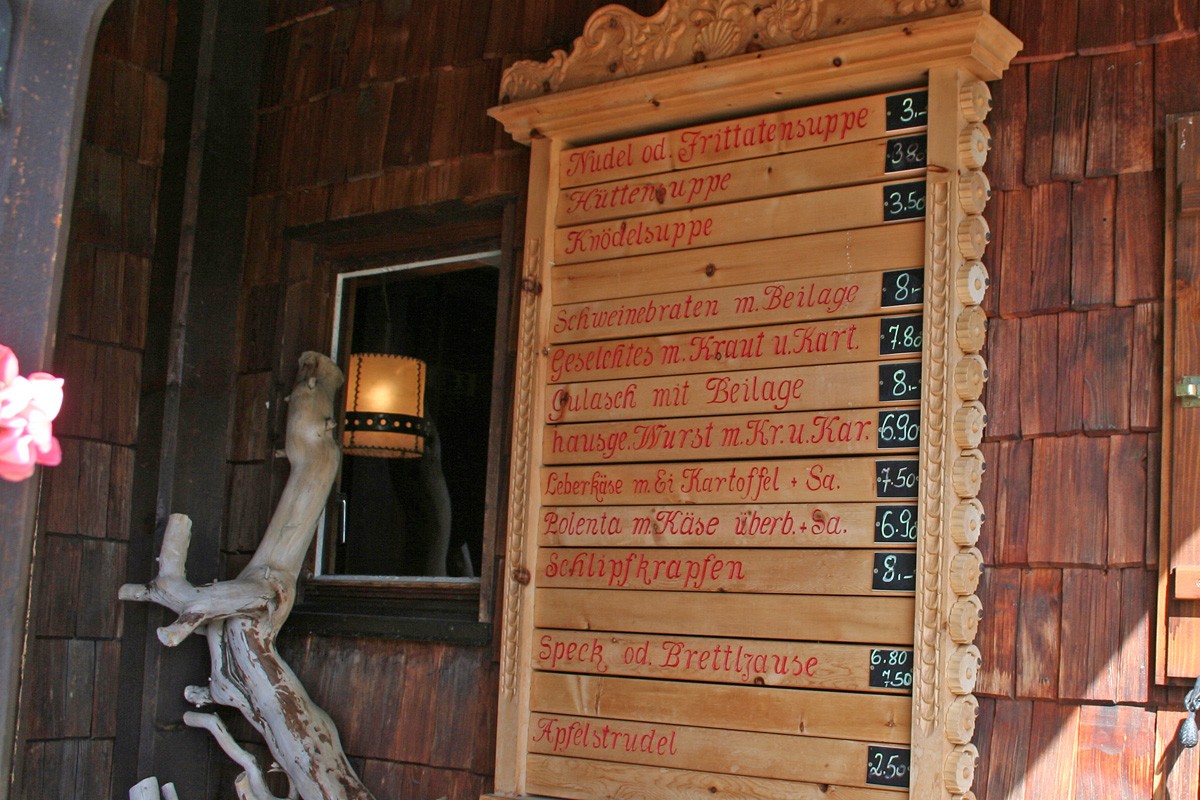 Nudel od. Frittatensuppe 3,-
Hüttensuppe 3.80
Knödelsuppe 3.50
Schweinebraten m. Beilage 8,-
Geselchtes m. Kraut u. Kart. 7.80
Gulasch mit Beilage 8,-
hausge. Wurst m. Kr. u. Kar. 6.90
Leberkäse m. Ei Kartoffel + Sa. 7.50
Polenta m. Käse überb. + Sa. 6.90
Schlipfkrapfen 8,-
Speck od. Brettljause 6.80 7.50
Apfelstrudel 2.50